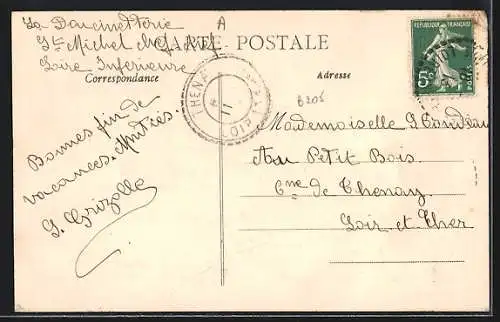 La Daucinetterie
St Michel
Loire Inférieure
A
CARTE POSTALE
Correspondance
Adresse
RÉPUBLIQUE FRANÇAISE
5c
POSTES
THENAY
11
6205
Bonnes fin de
vacances. Amitiés.
G. Grizolle
Mademoiselle G.
Au Petit Bois
Cne de Thenay
Loir et Cher